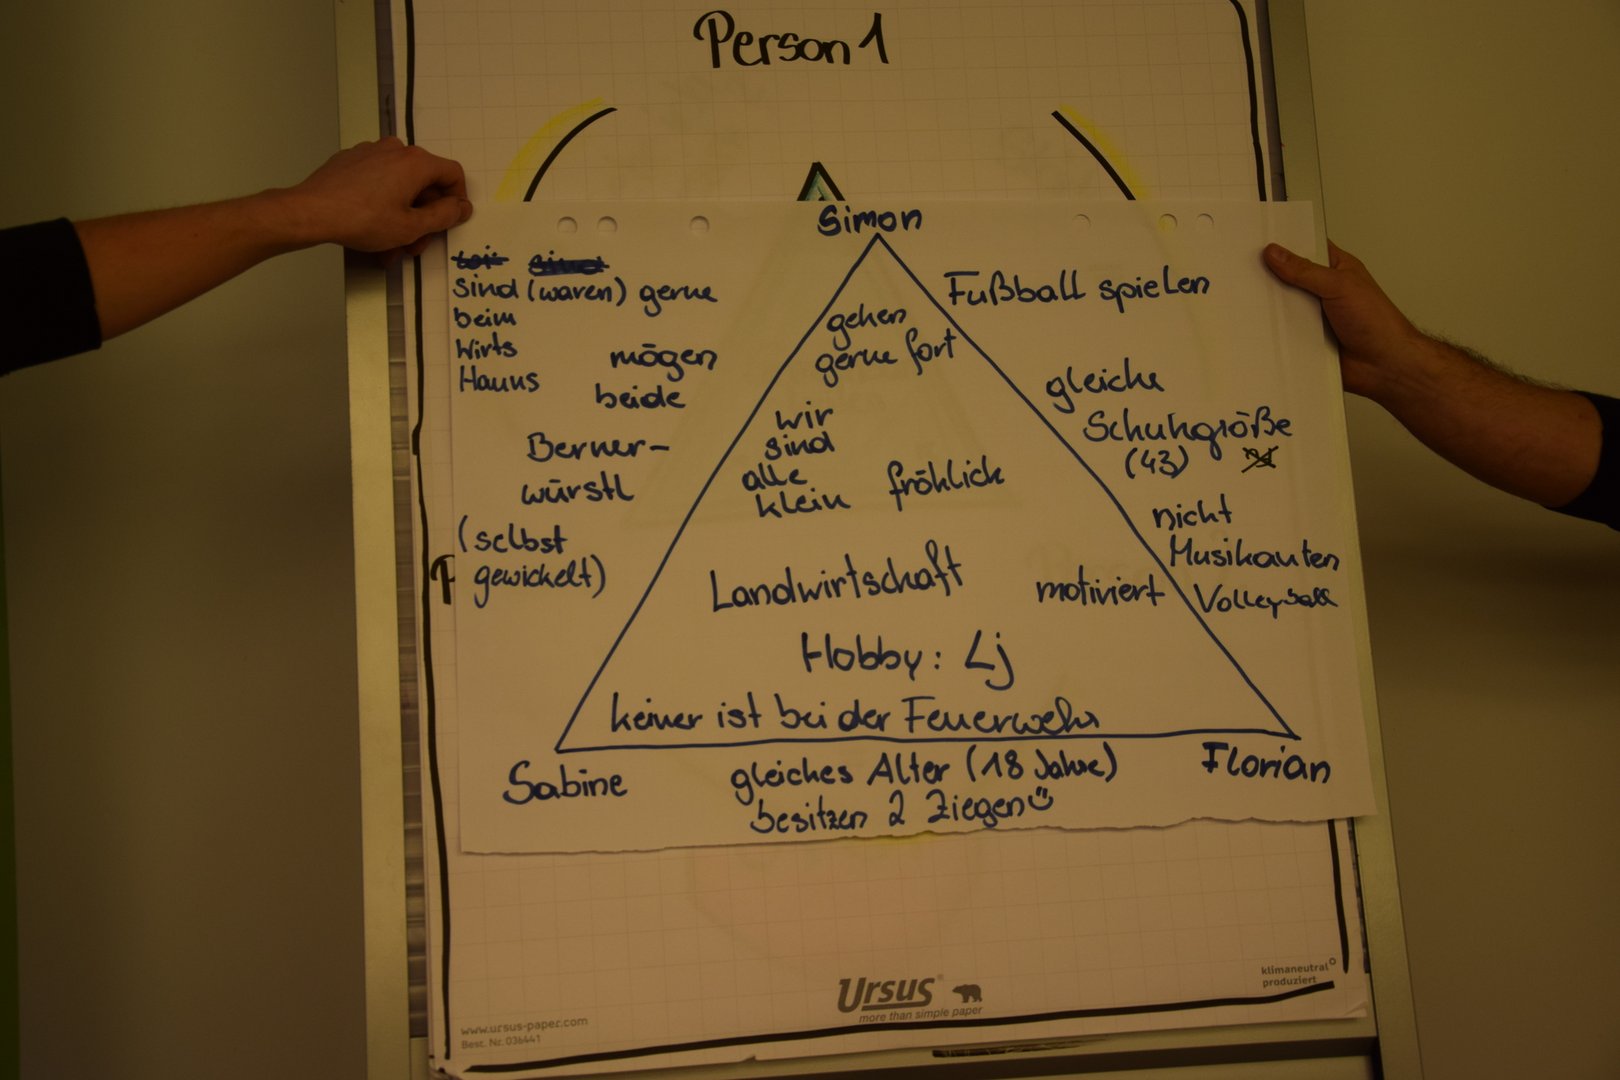 Person 1
Simon
sind (waren) gerne
beim
Wirts
Hauns
mögen
beide
Berner-
würstl
(selbst
gewickelt)
gehen
gerne fort
wir
sind
alle
klein
fröhlich
Landwirtschaft
motiviert
Hobby: Lj
keiner ist bei der Feuerwehr
Fußball spielen
gleiche
Schuhgröße
(43)
nicht
Musikanten
Volleyball
Sabine
Florian
gleiches Alter (18 Jahre)
besitzen 2 Ziegen
P
Ursus
more than simple paper
klimaneutral
produziert
www.ursus-paper.com
Best. Nr. 036441